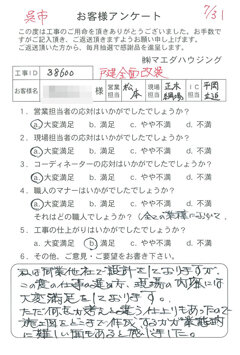 呉市
7/31
お客様アンケート
この度は工事のご用命を頂きありがとうございました。お手数で
すがご記入頂き、ご返送頂きますようお願い申し上げます。
ご返送頂いた方から、毎月抽選で感謝品を進呈します。
㈱マエダハウジング
工事ID 38600 戸建全面改装
お客様名 様 営業担当 松本 現場担当 正木 IC担当 平岡
1. 営業担当者の対応はいかがでしたでしょうか?
a.大変満足 b.満足 c.やや不満 d.不満
2. 現場担当者の対応はいかがでしたでしょうか?
a.大変満足 b.満足 c.やや不満 d.不満
3. コーディネーターの応対はいかがでしたでしょうか?
a.大変満足 b.満足 c.やや不満 d.不満
4. 職人のマナーはいかがでしたでしょうか?
a.大変満足 b.満足 c.やや不満 d.不満
それはどの職人でしょうか?(全ての業種において)
5. 工事の仕上がりはいかがでしたでしょうか?
a.大変満足 b.満足 c.やや不満 d.不満
6. その他、ご意見・ご要望をお書き下さい。
私は同業他社で設計をしておりますが、
この度の仕事の進め方、現場の内容には
大変満足をしております。
ただ何点か考えと違う仕上りもあったので
施工図をどこまで作成するかが業態的
に難しい面もあると感じました。